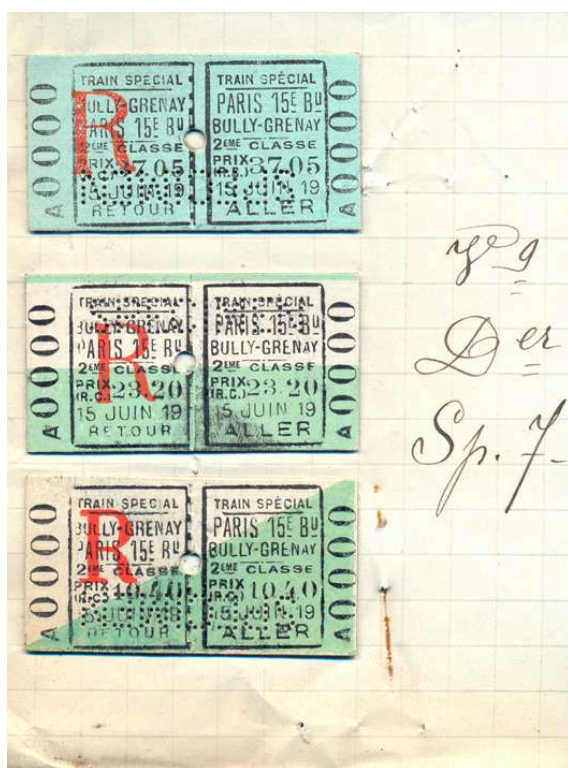 A0000
R
TRAIN SPÉCIAL
BULLY-GRENAY
PARIS 15E BU
2EME CLASSE
PRIX (R.C.) 37.05
15 JUIN 19
RETOUR
TRAIN SPÉCIAL
PARIS 15E BU
BULLY-GRENAY
2EME CLASSE
PRIX (R.C.) 37.05
15 JUIN 19
ALLER
A0000
A0000
R
TRAIN SPECIAL
BULLY-GRENAY
PARIS 15E BU
2EME CLASSE
PRIX (R.C.) 23.20
15 JUIN 19
RETOUR
TRAIN SPECIAL
PARIS 15E BU
BULLY-GRENAY
2EME CLASSE
PRIX (R.C.) 23.20
15 JUIN 19
ALLER
A0000
A0000
R
TRAIN SPECIAL
BULLY-GRENAY
PARIS 15E BU
2EME CLASSE
PRIX (R.C.) 10.40
15 JUIN 19
RETOUR
TRAIN SPÉCIAL
PARIS 15E BU
BULLY-GRENAY
2EME CLASSE
PRIX (R.C.) 10.40
15 JUIN 19
ALLER
A0000
Der
Sp. 7-